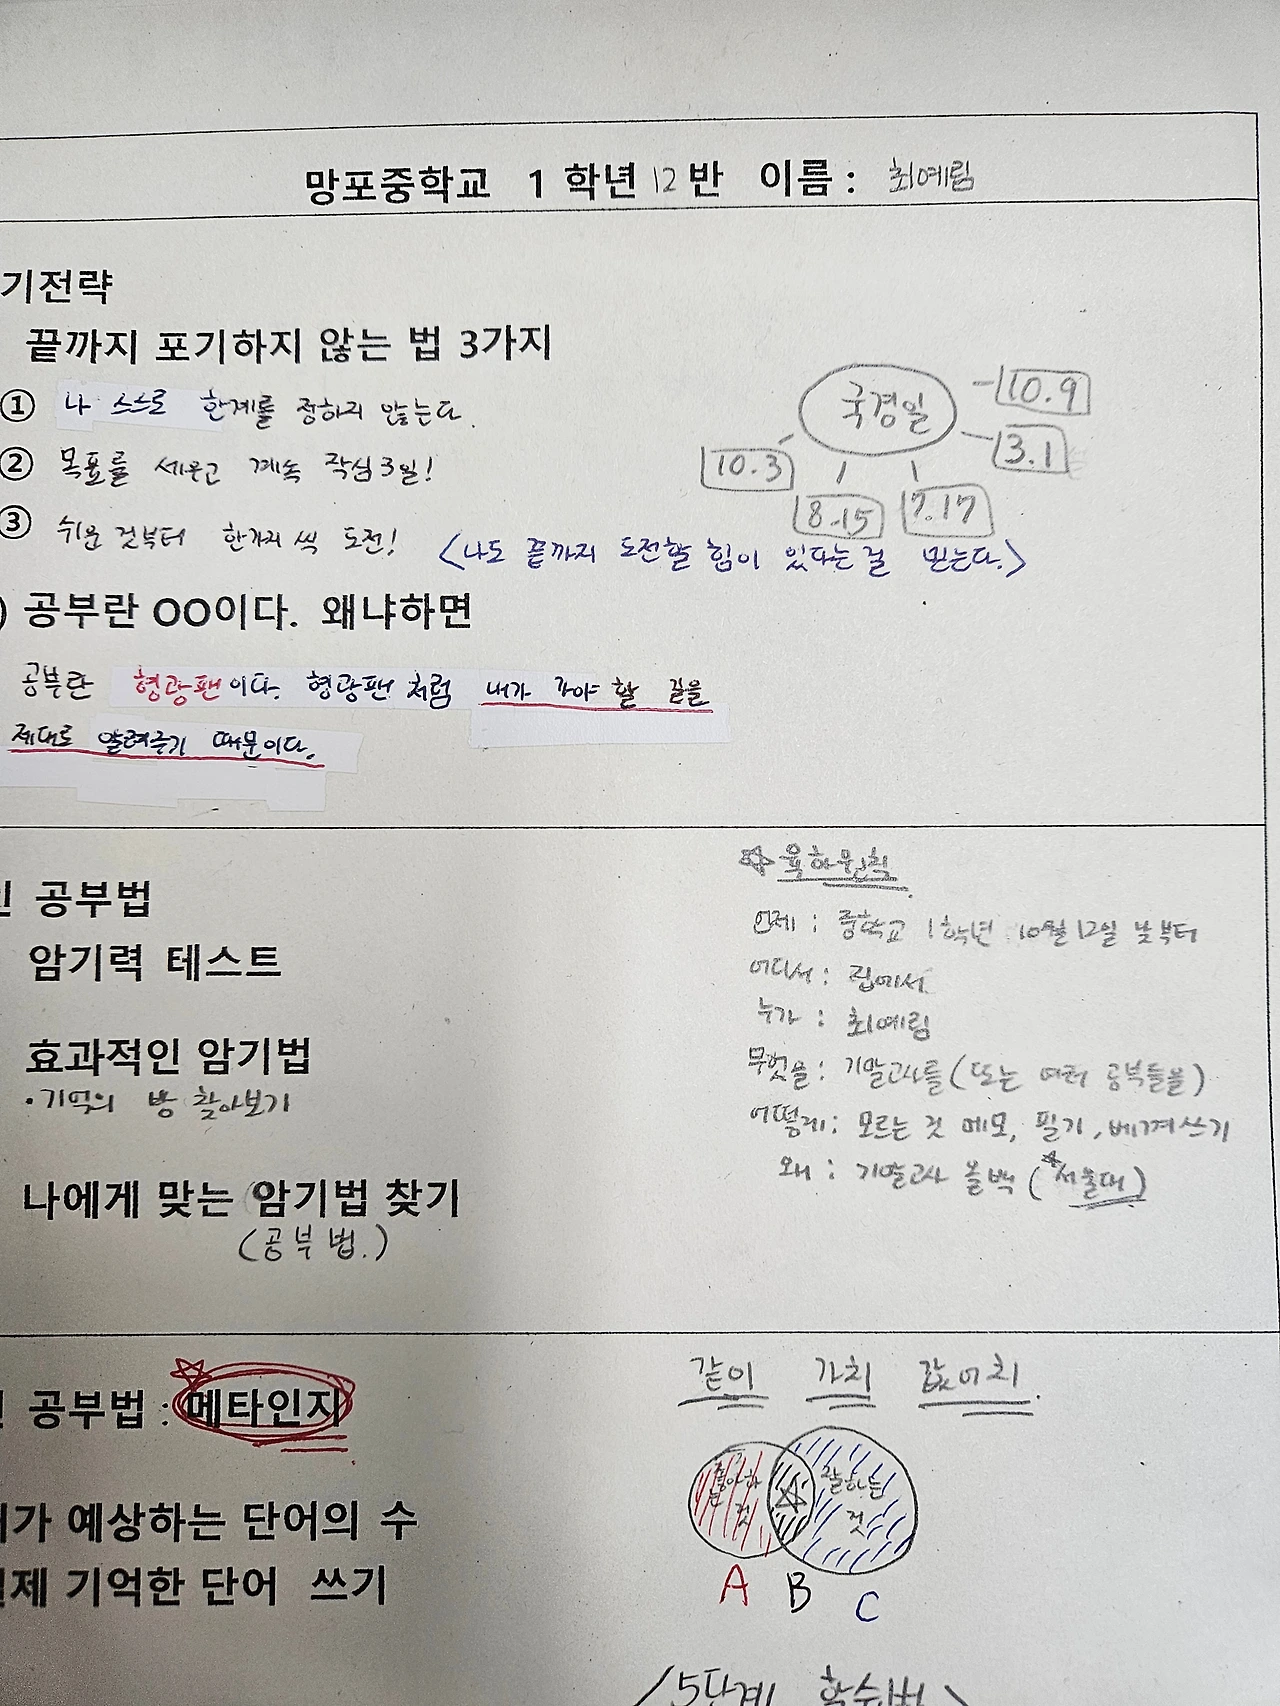 망포중학교 1 학년 12 반 이름 : 최예림
기전략
끝까지 포기하지 않는 법 3가지
① 나 스스로 한계를 정하지 않는다.
② 목표를 세운고 계속 작심3일!
③ 쉬운 것부터 한가지 씩 도전!
<나도 끝까지 도전할 힘이 있다는 걸 믿는다.>
국경일
10.9
3.1
10.3
8.15
7.17
) 공부란 OO이다. 왜냐하면
공부란 형광펜이다. 형광펜 처럼 내가 가야 할 길을
제대로 알려주기 때문이다.
인 공부법
암기력 테스트
효과적인 암기법
· 기억의 방 찾아보기
나에게 맞는 암기법 찾기
(공부법.)
☆육하원칙
언제 : 중학교 1학년 10월 12일 낮부터
어디서 : 집에서
누가 : 최예림
무엇을 : 기말고사를 (또는 여러 공부들을)
어떻게 : 모르는 것 메모, 필기, 베껴쓰기
왜 : 기말고사 올백 (☆서울대)
공부법 : 메타인지
내가 예상하는 단어의 수
실제 기억한 단어 쓰기
같이 가치 값어치.
좋아하는 것
잘하는 것
A B C
<5단계 학습법>